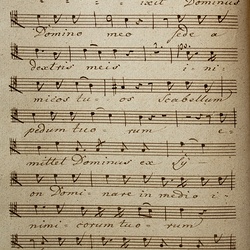 ixit Dominus
Domino meo sede a
dextris meis i - ni -
micos tu - os Scabellum
pedum tuo - rum e -
mittet Dominus ex Sy -
on Domi - nare in medio i -
nimi - corum tuo - rum